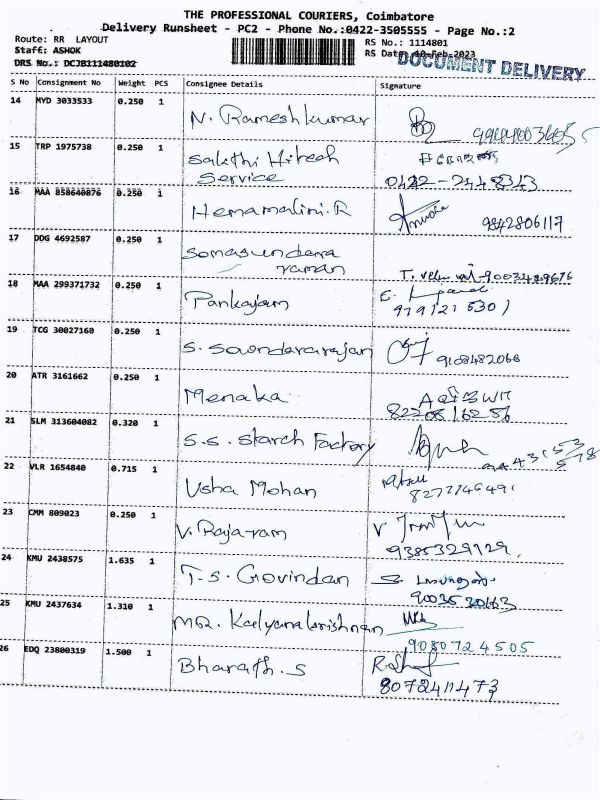 THE PROFESSIONAL COURIERS, Coimbatore
Delivery Runsheet - PC2 - Phone No.:0422-3505555 - Page No.:2
Route: RR LAYOUT
RS No.: 1114801
Staff: ASHOK
RS Date: 10-Feb-2023
DOCUMENT DELIVERY
DRS No.: DCJB111480102
S No Consignment No Weight PCS Consignee Details Signature
14 MYD 3033533 0.250 1
N. Rameshkumar
15 TRP 1975738 0.250 1
Sakthi Hitech
Service
0422-2448343
16 MAA 858640876 0.250 1
Hemamalini.R
9842806117
17 DDG 4692587 0.250 1
Somasundara
raman
18 MAA 299371732 0.250 1
Pankajam
919121 5301
19 TCG 30027160 0.250 1
S. Soundararajan
9108482066
20 ATR 3161662 0.250 1
Menaka
21 SLM 313604082 0.320 1
S.S. Starch Factory
22 VLR 1654840 0.715 1
Usha Mohan
23 CMM 809023 0.250 1
V. Rajaram
9385329129.
24 KMU 2438575 1.635 1
T.S. Govindan
25 KMU 2437634 1.310 1
MR. Kalyanakrishnan
9080724505
26 EDQ 23800319 1.500 1
Bharath.S
8072411473